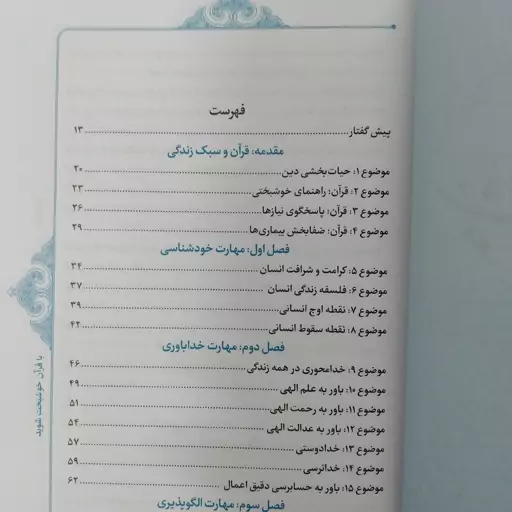 فهرست
پیش گفتار ۱۳
مقدمه: قرآن و سبک زندگی
موضوع ۱: حیات‌بخشی دین ۲۰
موضوع ۲: قرآن: راهنمای خوشبختی ۲۳
موضوع ۳: قرآن: پاسخگوی نیازها ۲۶
موضوع ۴: قرآن: شفابخش بیماری‌ها ۲۹
فصل اول: مهارت خودشناسی
موضوع ۵: کرامت و شرافت انسان ۳۴
موضوع ۶: فلسفه زندگی انسان ۳۷
موضوع ۷: نقطه اوج انسانی ۳۹
موضوع ۸: نقطه سقوط انسانی ۴۲
فصل دوم: مهارت خداباوری
موضوع ۹: خدامحوری در همه زندگی ۴۶
موضوع ۱۰: باور به علم الهی ۴۹
موضوع ۱۱: باور به رحمت الهی ۵۱
موضوع ۱۲: باور به عدالت الهی ۵۴
موضوع ۱۳: خدادوستی ۵۷
موضوع ۱۴: خداترسی ۵۹
موضوع ۱۵: باور به حسابرسی دقیق اعمال ۶۲
فصل سوم: مهارت الگوپذیری
با قرآن خوشبخت شوید